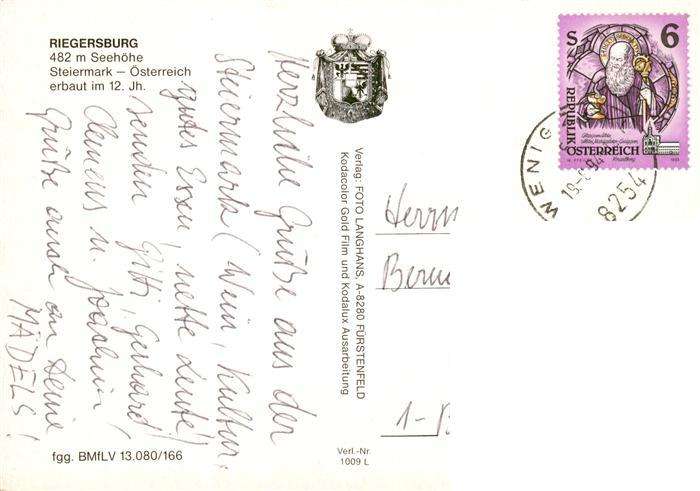 RIEGERSBURG
482 m Seehöhe
Steiermark – Österreich
erbaut im 12. Jh.
Herzliche Grüße aus der
Steiermark (Wein, Kultur,
gutes Essen, nette Leute)
senden Gitti, Gerhard,
Clemens u. Joachim!
Grüße auch an Deine
MÄDELS!
fgg. BMfLV 13.080/166
Verlag: FOTO LANGHANS, A-8280 FÜRSTENFELD
Kodacolor Gold Film und Kodalux Ausarbeitung
Verl.-Nr.
1009 L
Herrn
1-
S 6
REPUBLIK
ÖSTERREICH
WENIG
8254